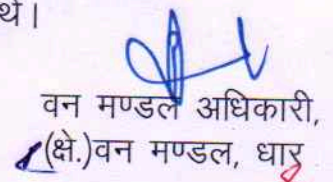 थे।
वन मण्डल अधिकारी,
(क्षे.)वन मण्डल, धार